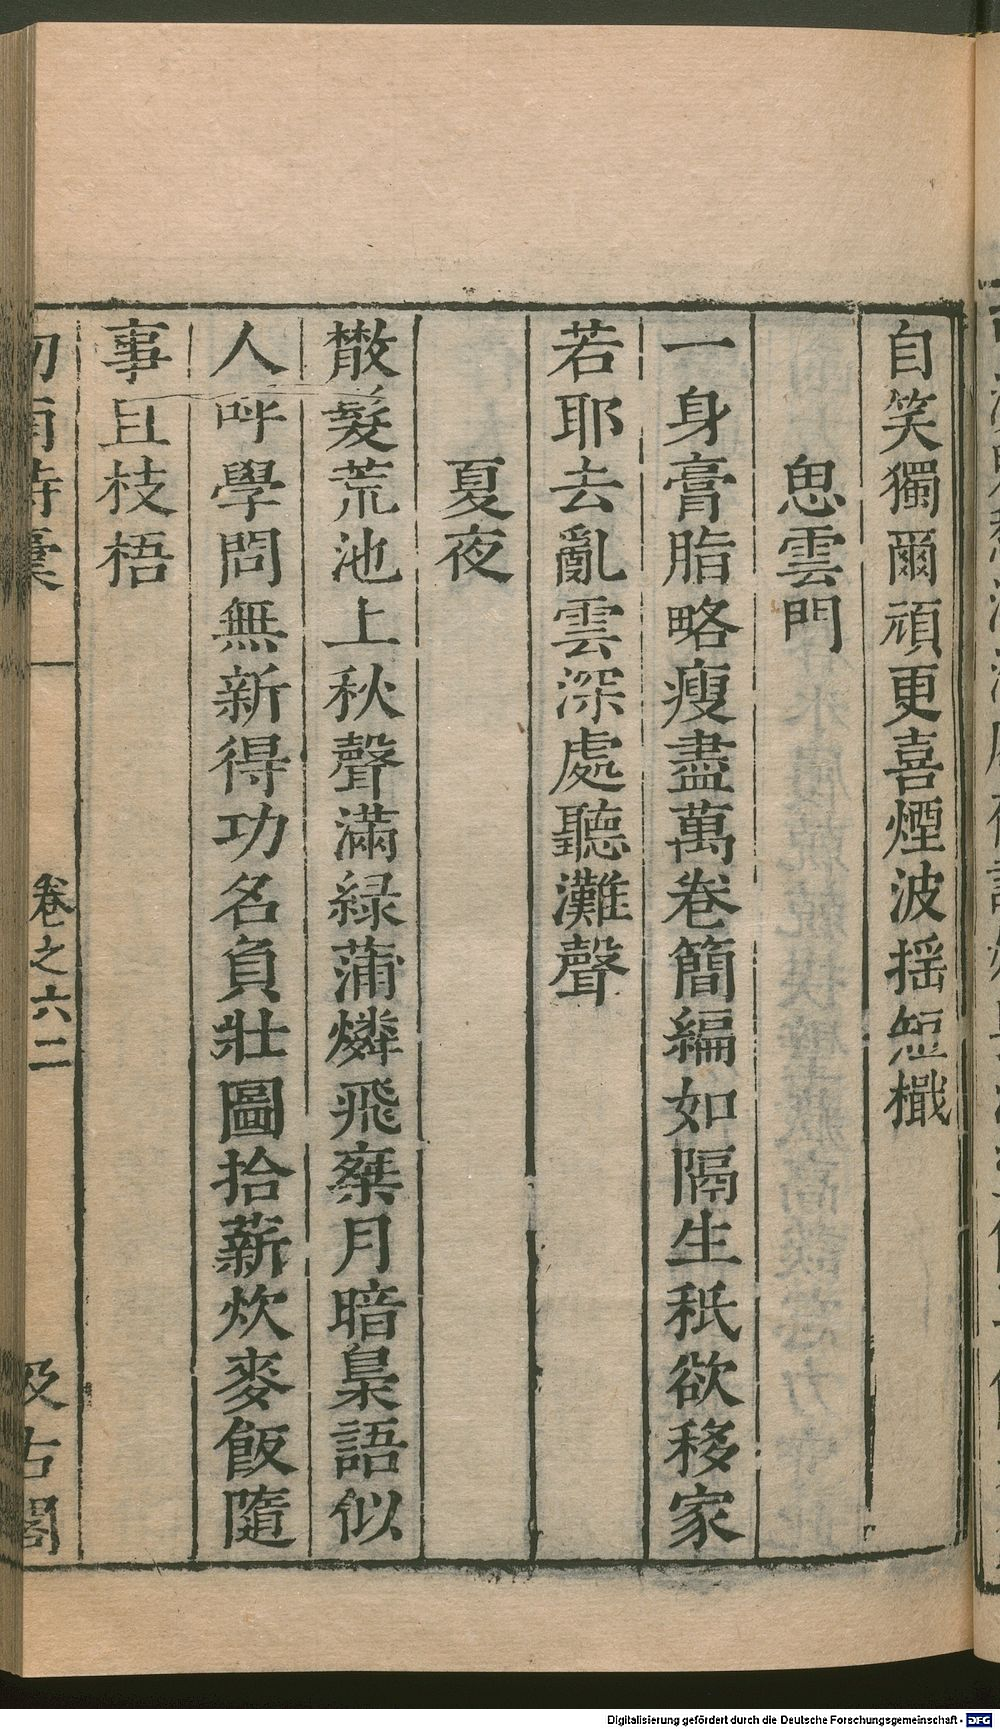 自笑獨爾頑更喜煙波摇短檝
思雲門
一身膏脂略瘦盡萬卷簡編如隔生秖欲移家
若耶去亂雲深處聽灘聲
夏夜
散髮荒池上秋聲滿緑蒲燐飛椉月暗梟語似
人呼學問無新得功名負壯圖拾薪炊麥飯隨
事且枝梧
卷之六二
汲古閣
Digitalisierung gefördert durch die Deutsche Forschungsgemeinschaft - DFG